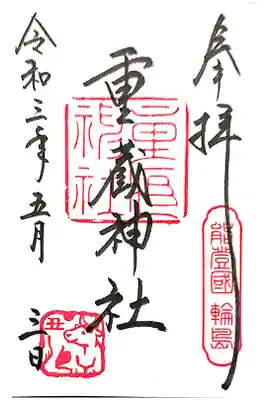 奉拝
能登國 輪島
重蔵神社
丑
令和三年五月
三日